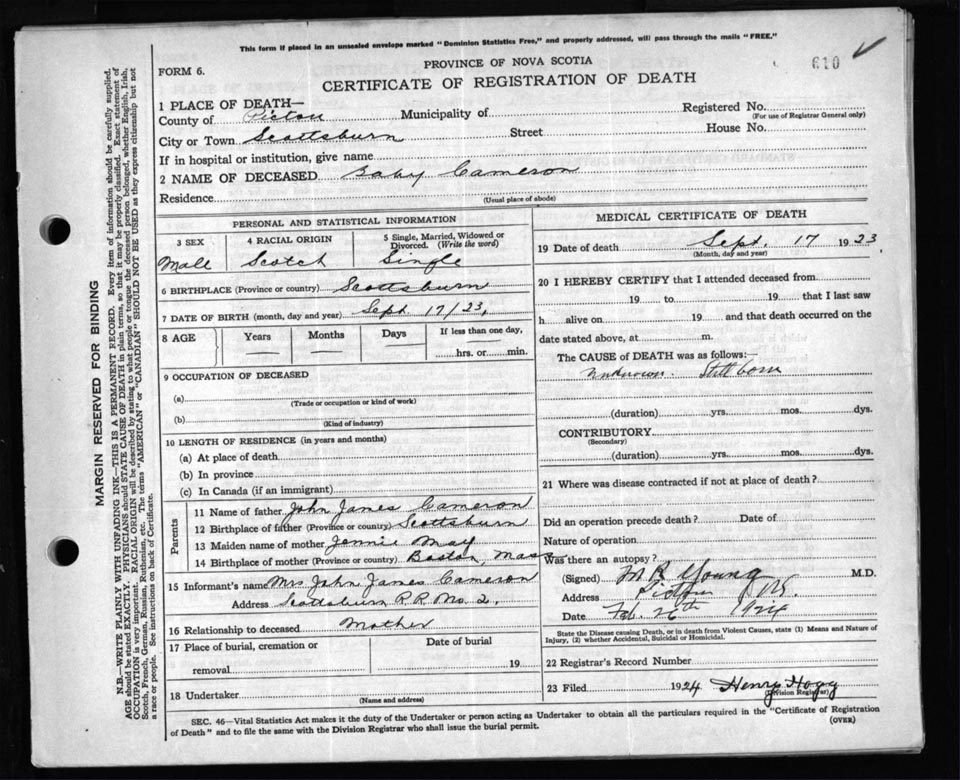 This form if placed in an unsealed envelope marked "Dominion Statistics Free," and properly addressed, will pass through the mails "FREE."
PROVINCE OF NOVA SCOTIA
610
FORM 6.
CERTIFICATE OF REGISTRATION OF DEATH
1 PLACE OF DEATH—
County of Pictou Municipality of Registered No.
(For use of Registrar General only)
City or Town Scottsburn Street House No.
If in hospital or institution, give name
2 NAME OF DECEASED Baby Cameron
Residence
(Usual place of abode)
PERSONAL AND STATISTICAL INFORMATION
3 SEX 4 RACIAL ORIGIN 5 Single, Married, Widowed or Divorced. (Write the word)
Male Scotch Single
6 BIRTHPLACE (Province or country) Scottsburn
7 DATE OF BIRTH (month, day and year) Sept 17/23,
8 AGE Years Months Days If less than one day,
hrs. or min.
9 OCCUPATION OF DECEASED
(a)
(Trade or occupation or kind of work)
(b)
(Kind of industry)
10 LENGTH OF RESIDENCE (in years and months)
(a) At place of death
(b) In province
(c) In Canada (if an immigrant)
Parents
11 Name of father John James Cameron
12 Birthplace of father (Province or country) Scottsburn
13 Maiden name of mother Jennie May
14 Birthplace of mother (Province or country) Boston, Mass
15 Informant's name Mrs John James Cameron
Address Scottsburn R.R. No. 2,
16 Relationship to deceased Mother
17 Place of burial, cremation or removal Date of burial
19
18 Undertaker
(Name and address)
MEDICAL CERTIFICATE OF DEATH
19 Date of death Sept. 17 1923
(Month, day and year)
20 I HEREBY CERTIFY that I attended deceased from
19 to 19 that I last saw
h alive on 19 and that death occurred on the
date stated above, at m.
The CAUSE OF DEATH was as follows:—
Unknown. Still born
(duration) yrs. mos. dys.
CONTRIBUTORY
(Secondary)
(duration) yrs. mos. dys.
21 Where was disease contracted if not at place of death?
Did an operation precede death? Date of
Nature of operation
Was there an autopsy?
(Signed) M B Young M.D.
Address Pictou N.S.
Date Feb. 26th 1924
State the Disease causing Death, or in death from Violent Causes, state (1) Means and Nature of Injury, (2) whether Accidental, Suicidal or Homicidal.
22 Registrar's Record Number
23 Filed 1924 Henry Hogg
(Division Registrar)
SEC. 46—Vital Statistics Act makes it the duty of the Undertaker or person acting as Undertaker to obtain all the particulars required in the "Certificate of Registration
of Death" and to file the same with the Division Registrar who shall issue the burial permit.
(OVER)
MARGIN RESERVED FOR BINDING
N.B.—WRITE PLAINLY WITH UNFADING INK—THIS IS A PERMANENT RECORD. Every item of information should be carefully supplied.
AGE should be stated EXACTLY. PHYSICIANS should STATE CAUSE OF DEATH in plain terms, so that it may be properly classified. Exact statement of
OCCUPATION is very important. RACIAL ORIGIN will be described by stating to what people or tongue the deceased person belonged, whether English, Irish,
Scotch, French, German, Russian, Ruthenian, etc. The terms "AMERICAN" or "CANADIAN" SHOULD NOT BE USED as they express citizenship but not
a race or people. See instructions on back of Certificate.